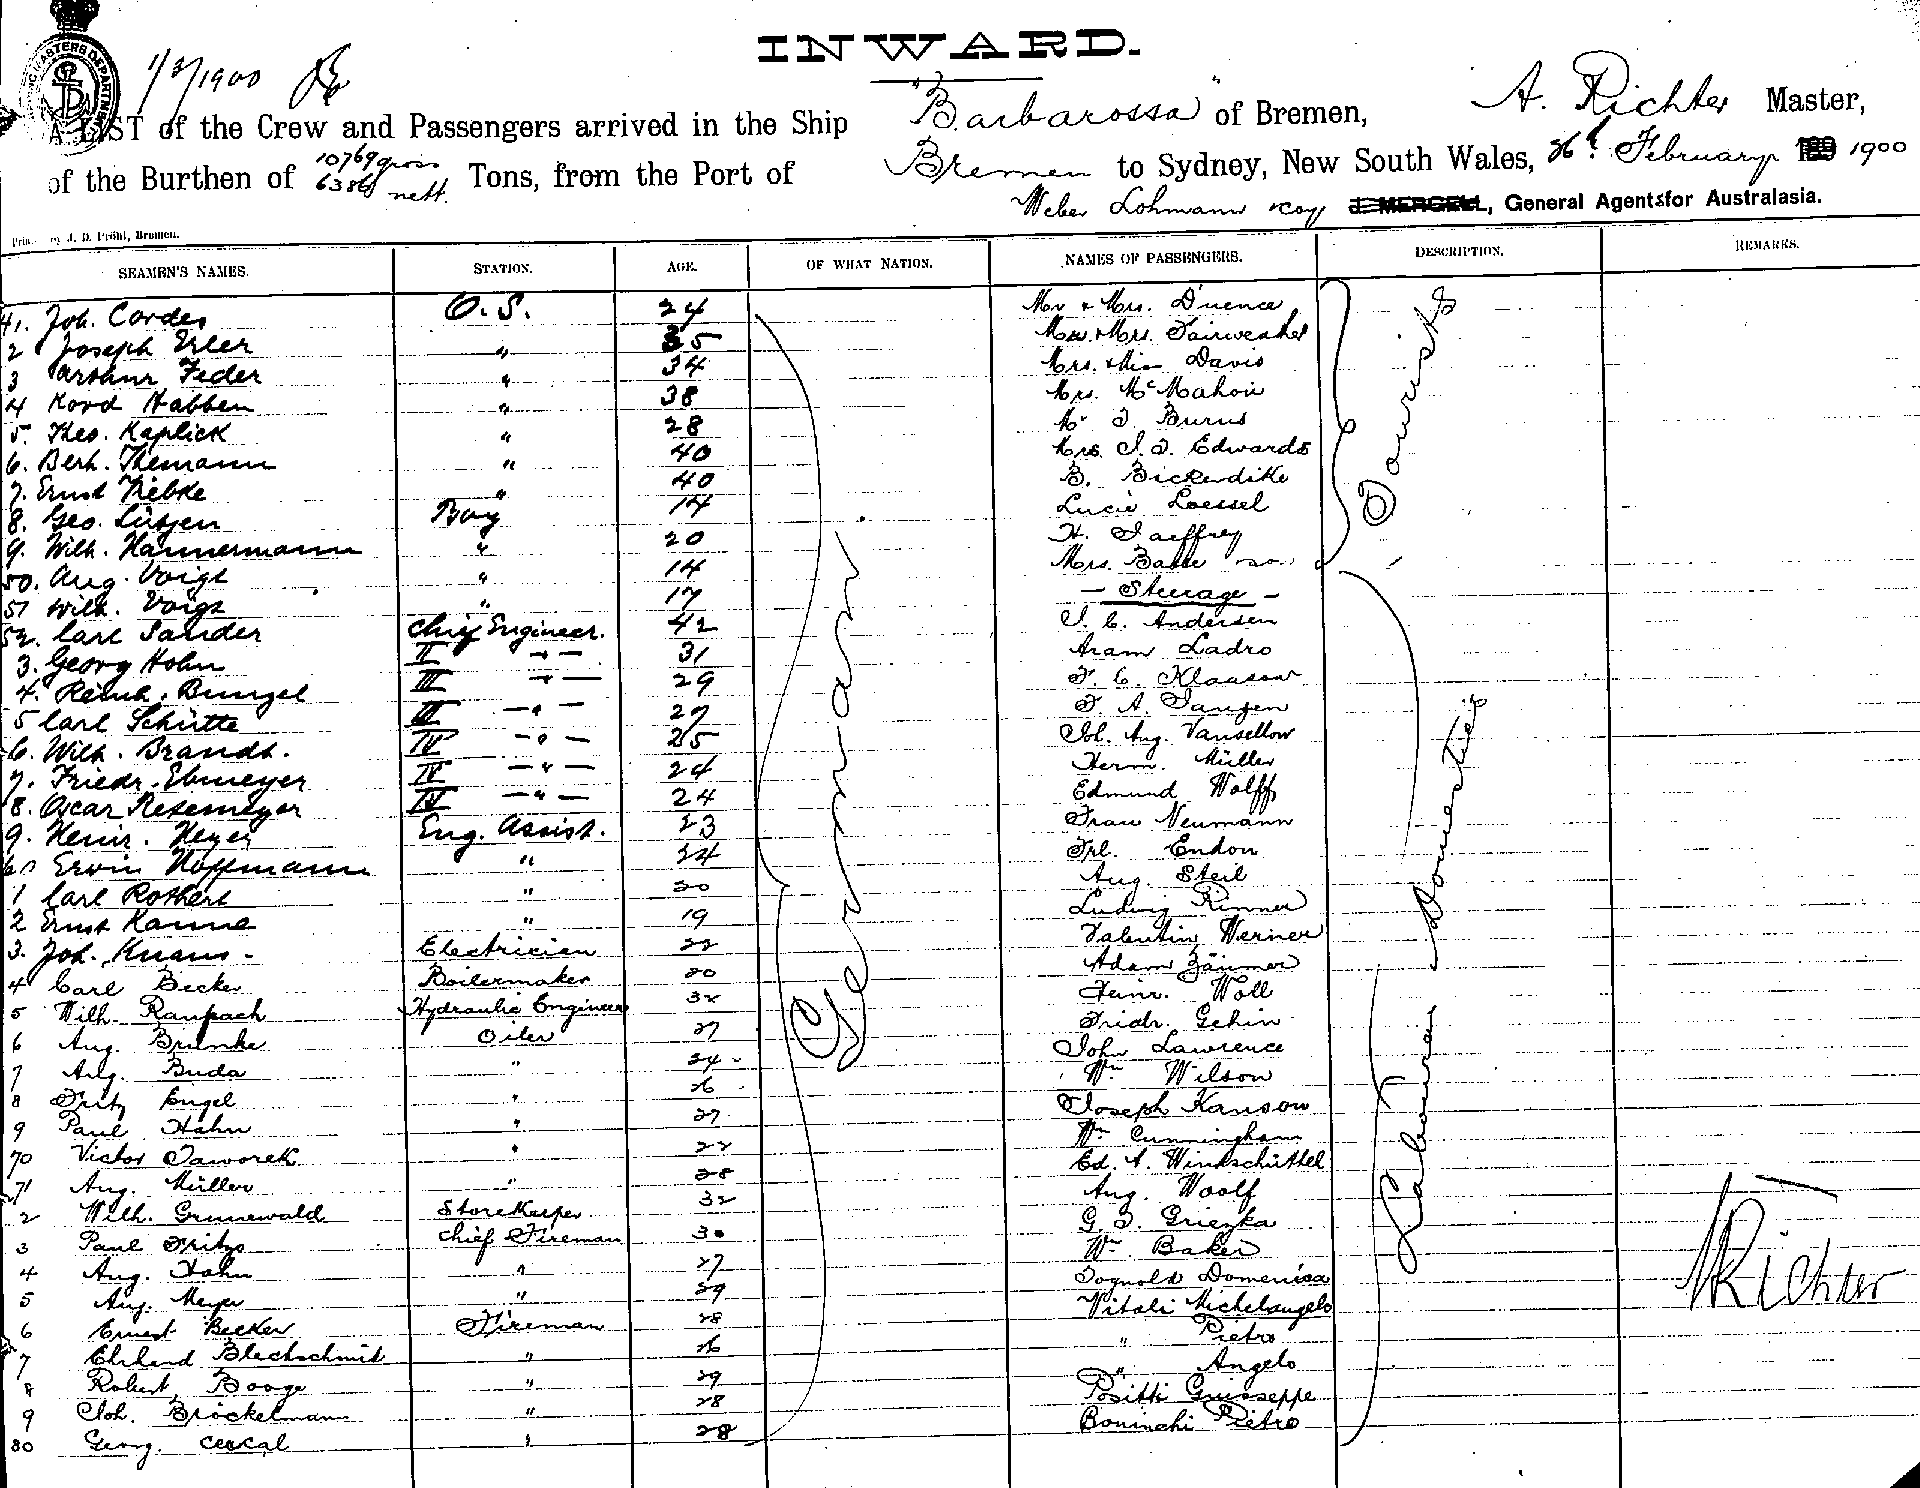 INWARD.
1/3/1900
A LIST of the Crew and Passengers arrived in the Ship "Barbarossa" of Bremen, A. Richter Master,
of the Burthen of 10769 gross 6386 nett. Tons, from the Port of Bremen to Sydney, New South Wales, 26th February 1900
Weber Lohmann & Coy J. MERGELL, General Agents for Australasia.
by J. D. Pröhl, Bremen.
SEAMEN'S NAMES. STATION. AGE. OF WHAT NATION. NAMES OF PASSENGERS. DESCRIPTION. REMARKS.
41. Joh. Cordes O.S. 24 Mr & Mrs. D'uence
2 Joseph Erler " 35 Mr & Mrs. Fairweather
3 Arthur Feder " 34 Mrs. & Miss Davis
4 Kord Habben " 38 Mrs. McMahon
5. Theo. Kaplick " 28 Mr J. Burns
6. Berh. Themann " 40 Mrs. J. J. Edwards
7. Ernst Tiebke " 40 B. Bickerdike
8. Geo. Lütjen Boy 14 Lucie Loessel
9. Wilh. Hannermann " 20 H. Jaeffrey
50. Aug. Voigt " 14 Mrs.
51 Wilh. Voigt " 17 - Steerage -
52. Carl Sander Chief Engineer. 42 J. C. Andersen
3. Georg Hohn II - " - 31 Aram Ladro
4. Reinh. Bungel III - " - 29 F. C. Klaasen
5 Carl Schütte III - " - 27 F. A. Jansen
6. Wilh. Brandt. IV - " - 25 Joh. Aug. Vansellow
7. Friedr. Ebmeyer IV - " - 24 Herm. Müller
8. Oscar Resemeyer IV - " - 24 Edmund Wolff
9. Heinr. Heyer Eng. Assist. 23 Frau Neumann
60 Erwin Hoffmann " 24 Frl. Endon
1 Carl Rothert " 30 Aug. Steil
2 Ernst Kanne " 19 Ludwig Rinner
3. Joh. Knaus - Electricien 22 Valentin Werner
4 Carl Becker Boilermaker 30 Adam Zäumer
5 Wilh. Raupach Hydraulic Engineer 32 Heinr. Woll
6 Aug. Brünke Oiler 27 Fridr. Gehin
7 Aug. Buda " 24 John Lawrence
8 Fritz Engel " 26 Wm Wilson
9 Paul Hahn " 27 Joseph Kanson
70 Victor Jaworek " 22 Wm Cunningham
71 Aug. Müller " 28 Ed. A. Windschüttel
2 Wilh. Grunewald Storekeeper 32 Aug. Woolf
3 Paul Fritzs Chief Fireman 30 G. J. Griezka
4 Aug. Hahn " 27 Wm Baker
5 Aug. Meyer " 29 Tognola Domenica
6 Ernest Becker Fireman 28 Vitali Michelangelo
7 Ehrhard Blechschmidt " 26 " Pietro
8 Robert Booge " 29 " Angelo
9 Joh. Bröckelmann " 28 Positti Guiseppe
80 Georg. Cercal " 28 Boninchi Pietro
German
Tourists
Domestics
Labourers
A Richter